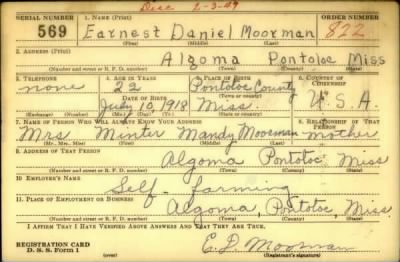 Disc 2-3-49
SERIAL NUMBER 1. NAME (Print) ORDER NUMBER
569 Earnest Daniel Moorman 822
(First) (Middle) (Last)
2. ADDRESS (Print)
Algoma Pontotoc Miss
(Number and street or R. F. D. number) (Town) (County) (State)
3. TELEPHONE 4. AGE IN YEARS 5. PLACE OF BIRTH 6. COUNTRY OF CITIZENSHIP
none 22 Pontotoc County
DATE OF BIRTH (Town or county)
July 10, 1918 Miss. U.S.A.
(Exchange) (Number) (Mo.) (Day) (Yr.) (State or country)
7. NAME OF PERSON WHO WILL ALWAYS KNOW YOUR ADDRESS 8. RELATIONSHIP OF THAT PERSON
Mrs Minter Mandy Moorman mother
(Mr., Mrs., Miss) (First) (Middle) (Last)
9. ADDRESS OF THAT PERSON
Algoma Pontotoc Miss
(Number and street or R. F. D. number) (Town) (County) (State)
10. EMPLOYER'S NAME
Self- farming
11. PLACE OF EMPLOYMENT OR BUSINESS
Algoma, Pontotoc, Miss.
(Number and street or R. F. D. number) (Town) (County) (State)
I AFFIRM THAT I HAVE VERIFIED ABOVE ANSWERS AND THAT THEY ARE TRUE.
REGISTRATION CARD
D. S. S. Form 1 E. D. Moorman
(over) (Registrant's signature)